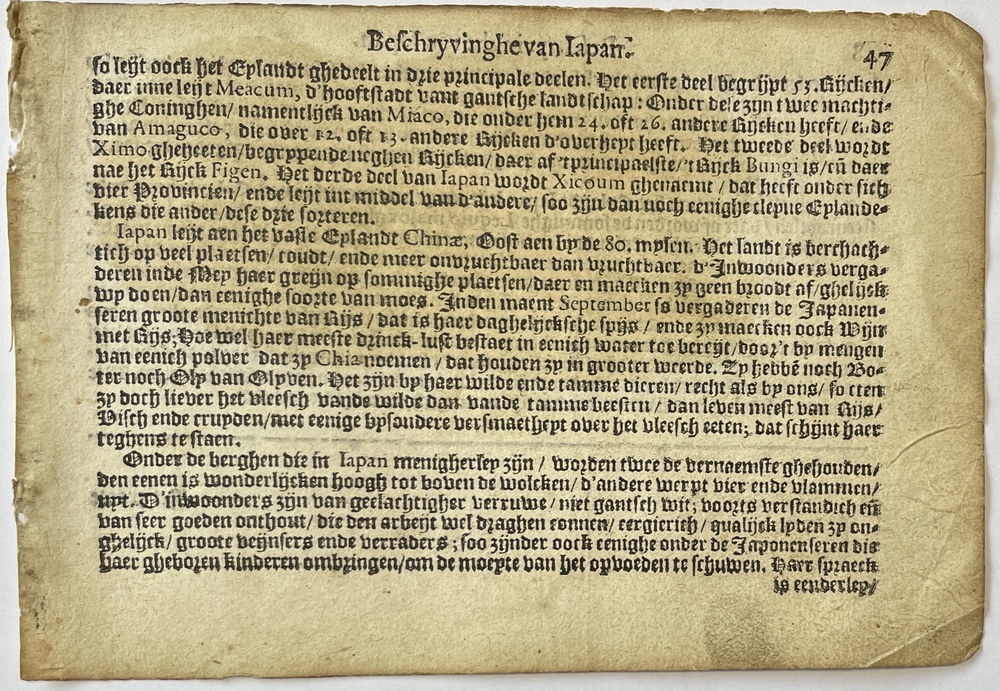 Beschryvinghe van Iapan. 47
so leijt oock het Eylandt ghedeelt in drie principale deelen. Het eerste deel begrijpt 53. Rijcken/
daer inne leijt Meacum, d'hooftstadt vant gantsche landtschap: Onder dese zijn twee machti-
ghe Coninghen/ namentlijck van Miaco, die onder hem 24. oft 26. andere Rijcken heeft/ ende
van Amaguco, die over 12. oft 13. andere Rijcken d'overheyt heeft. Het tweede deel wordt
Ximo gheheeten/begrypende neghen Rijcken/ daer af 'tprincipaelste/'t Rijck Bungi is/eñ daer
nae het Rijck Figen. Het derde deel van Iapan wordt Xicoum ghenaemt / dat heeft onder sich
vier Provincien/ ende leijt int middel van d'andere/ soo zijn dan noch eenighe cleyne Eylande-
kens die ander/dese drie sorteren.
Iapan leijt aen het vaste Eylandt Chinæ, Oost aen by de 80. mylen. Het landt is berchach-
tich op veel plaetsen/ coudt/ ende meer onvruchtbaer dan vruchtbaer. d'Inwoonders verga-
deren inde Mey haer greijn op sommighe plaetsen/daer en maecken zy geen broodt af/ghelijck
wy doen/dan eenighe soorte van moes. Inden maent September so vergaderen de Iapanen-
seren groote menichte van Rijs / dat is haer daghelijcksche spijs / ende zy maecken oock Wijn
met Rijs; Hoe wel haer meeste drinck-lust bestaet in eenich water toe bereijt/door't by mengen
van eenich polver dat zy Chia noemen / dat houden zy in grooter weerde. Zy hebbē noch Bo-
ter noch Oly van Olyven. Het zijn by haer wilde ende tamme dieren/ recht als by ons/ so eten
zy doch liever het vleesch vande wilde dan vande tamme beesten/ dan leven meest van Rijs/
Visch ende cruyden/met eenige bysondere versmaetheyt over het vleesch eeten; dat schijnt haer
teghens te staen.
Onder de berghen die in Iapan menigherley zijn / worden twee de vernaemste ghehouden/
den eenen is wonderlijcken hoogh tot boven de wolcken/ d'andere werpt vier ende vlammen/
uyt. D'inwoonders zijn van geelachtigher verruwe/ niet gantsch wit; voorts verstandich eñ
van seer goeden onthout/ die den arbeijt wel draghen connen/ eergierich/ qualijck lyden zy on-
ghelijck/ groote veijnsers ende verraders; soo zijnder oock eenighe onder de Japonenseren die
haer gheboren kinderen ombringen/om de moeyte van het opvoeden te schuwen. Haer spraeck
is eenderley/